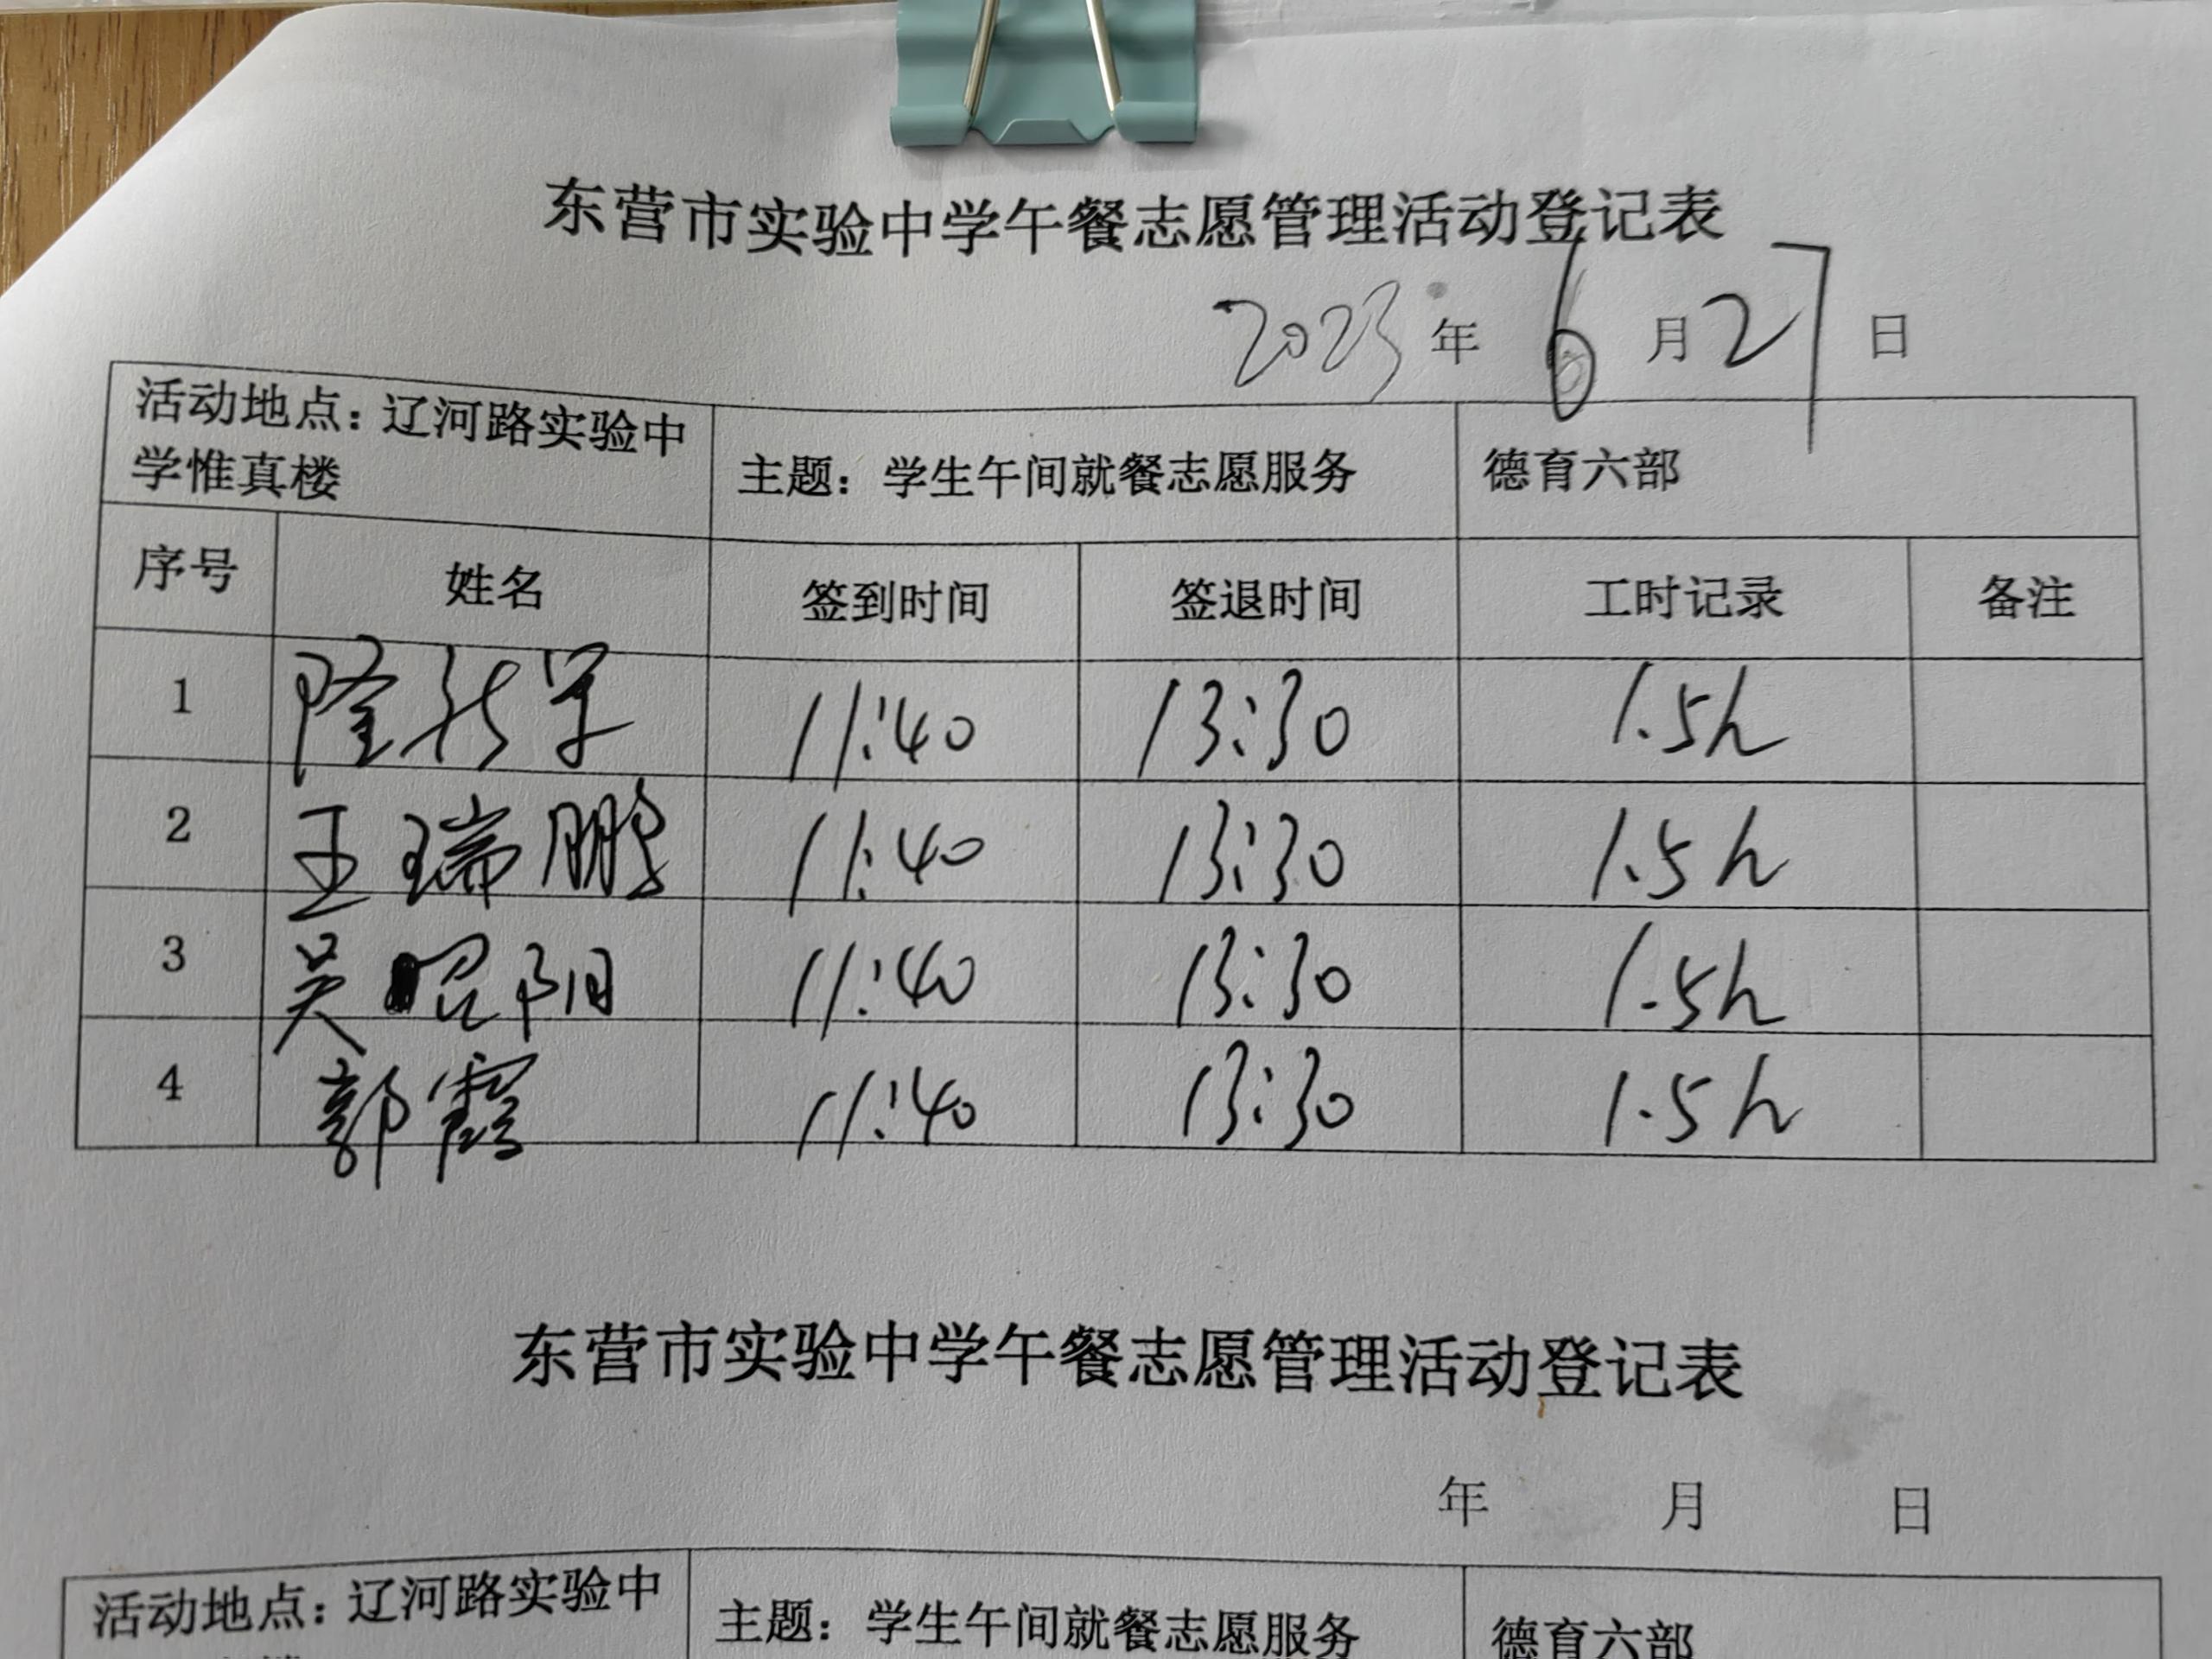 东营市实验中学午餐志愿管理活动登记表
2023 年 6 月 27 日
活动地点：辽河路实验中
学惟真楼
主题：学生午间就餐志愿服务
德育六部
序号 姓名 签到时间 签退时间 工时记录 备注
1 隆新军 11:40 13:30 1.5h
2 王瑞鹏 11:40 13:30 1.5h
3 吴昭阳 11:40 13:30 1.5h
4 郭霞 11:40 13:30 1.5h
东营市实验中学午餐志愿管理活动登记表
年 月 日
活动地点：辽河路实验中
主题：学生午间就餐志愿服务
德育六部